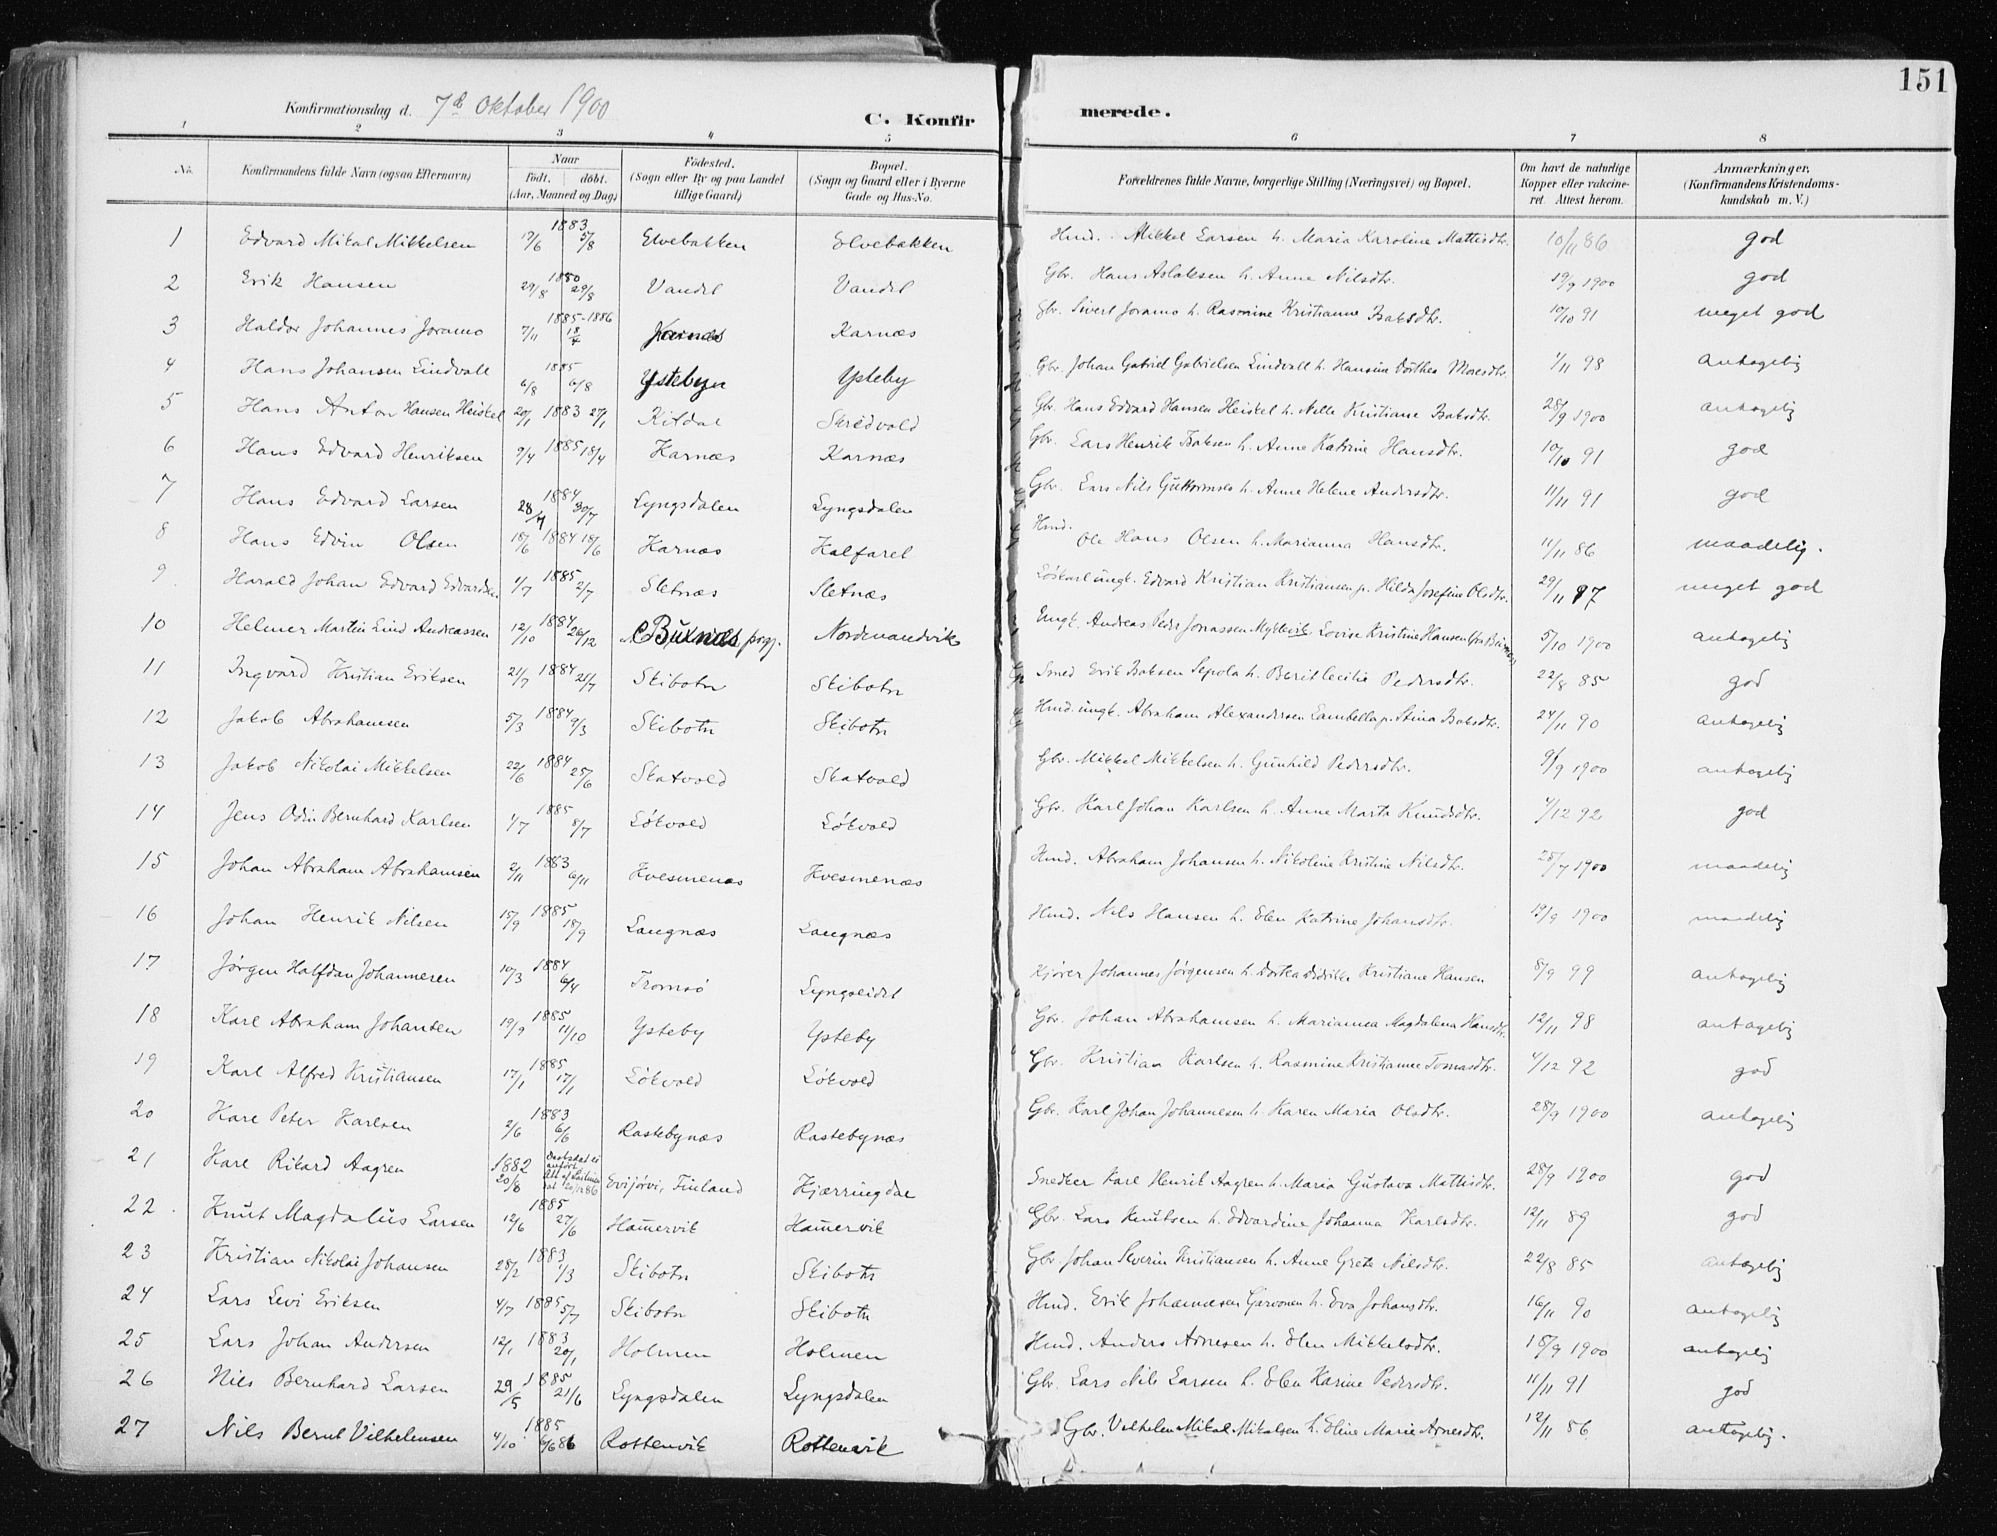 151
Konfirmationsdag d. 7de Oktober 1900
C. Konfirmerede.
1 2 3 4 5 6 7 8
No. Konfirmandens fulde Navn (ogsaa Efternavn) Naar Födt. döbt. (Aar, Maaned og Dag) Födested. (Sogn eller By og paa Landet tillige Gaard) Bopæl. (Sogn og Gaard eller i Byerne Gade og Hus-No. Forældrenes fulde Navne, borgerlige Stilling (Næringsvei) og Bopæl. Om havt de naturlige Kopper eller vakcineret. Attest herom. Anmærkninger. (Konfirmandens Kristendomskundskab m. V.)
1 Edvard Mikal Mikkelsen 1883 17/6 5/8 Elvebakken Elvebakken Hmd. Mikkel Larsen h. Maria Karoline Mattisdtr. 10/11 86 god
2 Erik Hansen 1880 29/8 29/8 Vandet Vandet Gbr. Hans Aslaksen h. Anne Nilsdtr. 19/9 1900 god
3 Haldor Johannes Joramo 1885-1886 7/11 18/7 Karnæs Gbr. Sivert Joramo h. Rasmine Kristianne Isaksdtr. 10/10 91 meget god
4 Hans Johansen Lindvall 1885 6/8 6/8 Ysteby Ysteby Gbr. Johan Gabriel Gabrielsen Lindvall h. Hansine Dorthea Mosesdtr. 1/11 98 antagelig
5 Hans Anton Hansen Heiskel 20/1 1883 27/1 Kitdal Skredvold Gbr. Hans Edvard Hansen Heiskel h. Nelle Kristiane Isaksdtr. 28/9 1900 antagelig
6 Hans Edvard Henriksen 9/4 1885 18/4 Karnæs Karnæs Gbr. Lars Henrik Isaksen h. Anne Katrine Hansdtr. 10/10 91 god
7 Hans Edvard Larsen 1884 28/7 30/7 Lyngsdalen Lyngsdalen Gbr. Lars Nils Guttormsen h. Anne Helene Andersdtr. 11/11 91 god
8 Hans Edvin Olsen 18/6 1884 18/6 Karnæs Kalfaret Hmd. Ole Hans Olsen h. Marianna Hansdtr. 11/11 86 maadelig.
9 Harald Johan Edvard Edvardsen 1/7 1885 2/7 Sletnæs Sletnæs Löskarl ungk. Edvard Kristian Kristiansen p. Hilda Josefine Olsdtr. 29/11 97 meget god
10 Helmer Martin Lind Andreassen 12/10 1884 26/12 Buxnæs prgj. Nordmandvik Ungk. Andreas Peder Jonassen Myklevik Lovise Kristine Hansen 5/10 1900 antagelig
11 Ingvard Kristian Eriksen 21/7 1884 21/7 Skibotn Skibotn Smed Erik Isaksen Sepola h. Berit Cecilie Pedersdtr. 22/8 85 god
12 Jakob Abrahamsen 5/3 1884 9/3 Skibotn Skibotn Hmd. ungk. Abraham Alexandersen Lambella p. Stina Isaksdtr. 24/11 90 antagelig
13 Jakob Nikolai Mikkelsen 22/6 1884 25/6 Skatvold Skatvold Gbr. Mikkel Mikkelsen h. Gunhild Pedersdtr. 9/9 1900 antagelig
14 Jens Odin Bernhard Karlsen 1/7 1885 8/7 Lökvold Lökvold Gbr. Karl Johan Karlsen h. Anne Marta Knudsdtr. 4/12 92 god
15 Johan Abraham Abrahamsen 2/11 1883 6/11 Kvesmenæs Kvesmenæs Hmd. Abraham Johansen h. Nikoline Kristine Nilsdtr. 28/7 1900 maadelig
16 Johan Henrik Nilsen 15/9 1885 18/9 Langnæs Langnæs Hmd. Nils Hansen h. Elen Katrine Johansdtr. 19/9 1900 maadelig
17 Jørgen Halfdan Johannesen 10/3 1884 6/4 Tromsö Lyngseidet Kjører Johannes Jørgensen h. Dortea Didrikke Kristiane Hansen 8/9 99 antagelig
18 Karl Abraham Johansen 19/9 1885 11/10 Ysteby Ysteby Gbr. Johan Abrahamsen h. Marianna Magdalena Hansdtr. 12/11 98 antagelig
19 Karl Alfred Kristiansen 17/1 1885 17/1 Lökvold Lökvold Gbr. Kristian Karlsen h. Rasmine Kristianne Tomasdtr. 4/12 92 god
20 Karl Peter Karlsen 2/6 1883 6/6 Rastebynæs Rastebynæs Gbr. Karl Johan Johannesen h. Karen Maria Olsdtr. 28/9 1900 antagelig
21 Karl Rikard Aagren 1882 20/8 Evijörvi, Finland Kjærringdal Snedker Karl Henrik Aagren h. Maria Gustava Mattisdtr. 28/9 1900 god
22 Knut Magdalus Larsen 12/6 1885 27/6 Hamervik Hamervik Gbr. Lars Knutsen h. Edvardine Johanna Karlsdtr. 12/11 89 god
23 Kristian Nikolai Johansen 28/2 1883 1/3 Skibotn Skibotn Gbr. Johan Severin Kristiansen h. Anne Grete Nilsdtr. 22/8 85 antagelig
24 Lars Levi Eriksen 4/7 1885 5/7 Skibotn Skibotn Hmd. Erik Johannesen Garvonen h. Eva Johansdtr. 16/11 90 antagelig
25 Lars Johan Andersen 12/1 1883 20/1 Holmen Holmen Hmd. Anders Arnesen h. Elen Mikkelsdtr. 18/9 1900 antagelig
26 Nils Bernhard Larsen 29/5 1885 21/6 Lyngsdalen Lyngsdalen Gbr. Lars Nils Larsen h. Elen Karine Pedersdtr. 11/11 91 god
27 Nils Bernt Vilhelmsen 4/10 1885 6/6 86 Rottenvik Rottenvik Gbr. Vilhelm Mikal Mikalsen h. Eline Marie Arnesdtr. 12/11 86 antagelig.